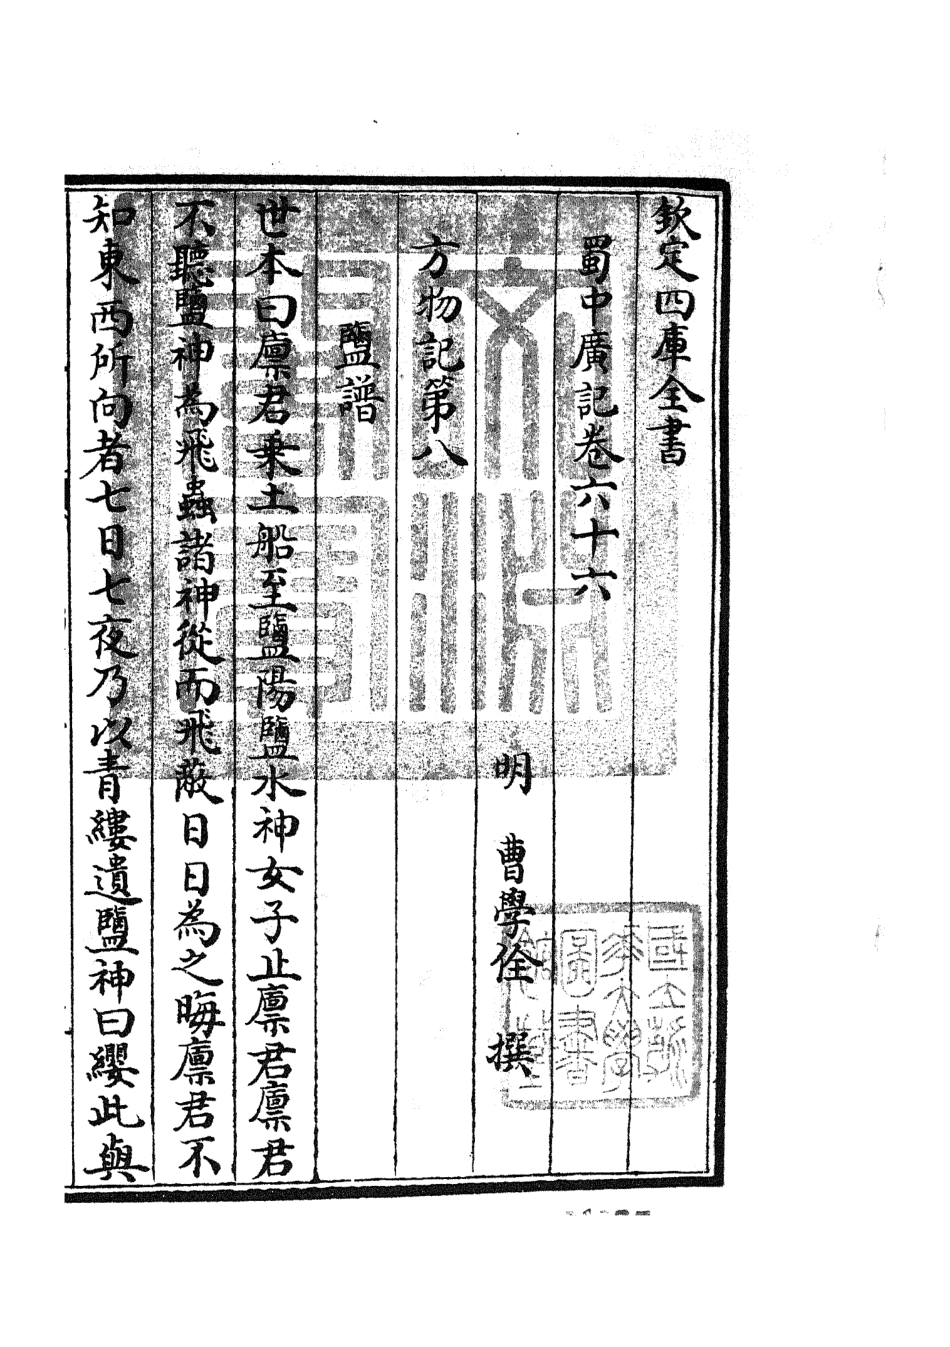 欽定四庫全書
蜀中廣記卷六十六
明 曹學佺 撰
方物記第八
鹽譜
世本曰廪君乗土船至鹽陽鹽水神女子止廪君廪君
不聽鹽神為飛蟲諸神從而飛蔽日日為之晦廪君不
知東西所向者七日七夜乃以青縷遺鹽神曰纓此與